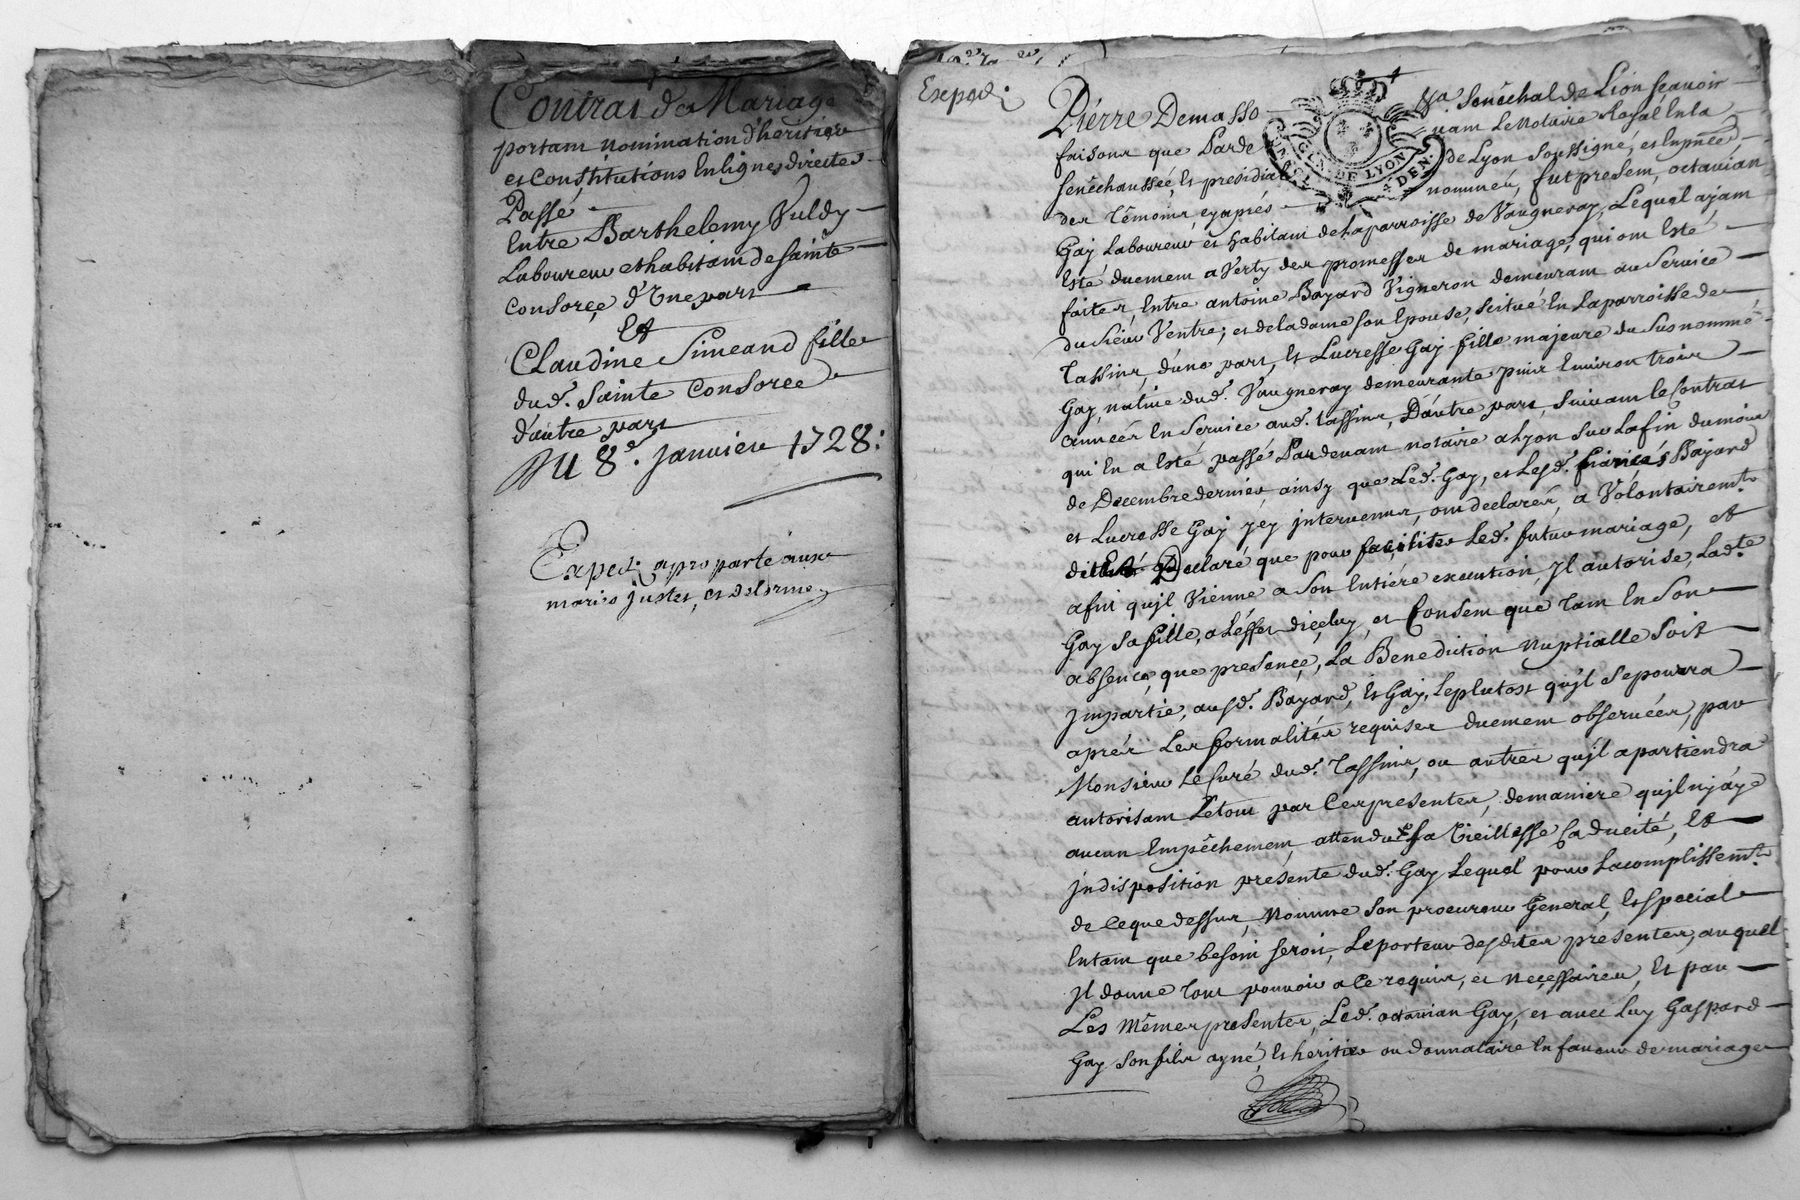 Contrat de Mariage
portant nomination d'heritier
et Constitutions en lignes directes
Passé
Entre Barthelemy Vuldy
Laboureur et habitant de Sainte
Consorçe d'Une part
Et
Claudine Simeand fille
dud. Sainte Consorce
d'autre part
Du 8e. Janvier 1728:
Exped. apro parte aux
mariés Justes, et delorme
Exped.
Pierre Demasso Senéchal de Lion sçavoir
faisons que Parde uant Le Notaire Royal En la
Senéchaussée, Et presidial de Lyon Soussigné, et En pnce,
des Témoins cy aprés nommés, fut present, octavian
GEN. DE LYON
DEN.
Gay Laboureur et habitant de la parroisse de Vaugneray, Lequel ayant
Esté duement averty des promesses de mariage, qui ont Esté
faites, Entre antoine Bayard Vigneron demeurant au Service
du Sieur Ventre; et de la dame son Epouse, Scitué En La parroisse de
Tassins, d'une part, Et Lucresse Gay fille majeure du Susnommé
Gay, natiue dud. Vaugneray demeurante puis Enuiron trois
années En Seruice aud. Tassins, D'autre part, Suiuant le Contrat
qui En a Esté passé Pardeuant notaire a Lyon Sur La fin du mois
de Decembre dernier, ainsy que Led. Gay, et Lesd. fiancés Bayard
et Lucresse Gay y ey interuenus, ont declarés, a Volontairemt.
Declaré que pour faciliter Led. futur mariage, et
afin qu'jl Vienne a Son Entiére execution, Jl autorise, Ladte.
Gay Sa fille, a L'effet d'jçeluy, et Consent que Tant En Son
absence, que presençe, La Benediction Nuptialle Soit
Jmpartie, ausd. Bayard, Et Gay, Le plutost qu'jl Se pourra
aprés Les formalités requises duement obseruées, par
Monsieur Le Curé dud. Tassins, ou autres qu'jl apartiendra
autorisant Letout par Ces presentes, demaniere qu'jl n'j aye
aucun Empêchement, attendu La Vieillesse Caducité, Et
jndisposition présente dud. Gay Lequel pour L'acomplissemt.
de Ceque dessus, Nomme Son procureur General, Et special
Entant que besoin Seroit, Le porteur desdites présentes, auquel
Jl donne tout pouuoir a Ce requis, et Neçessaires, Et par
Les Mêmes presentes, Led. octavian Gay, et auec Luy Gaspard
Gay Son fils ayné, Et heritier ou donnataire En faueur de mariage